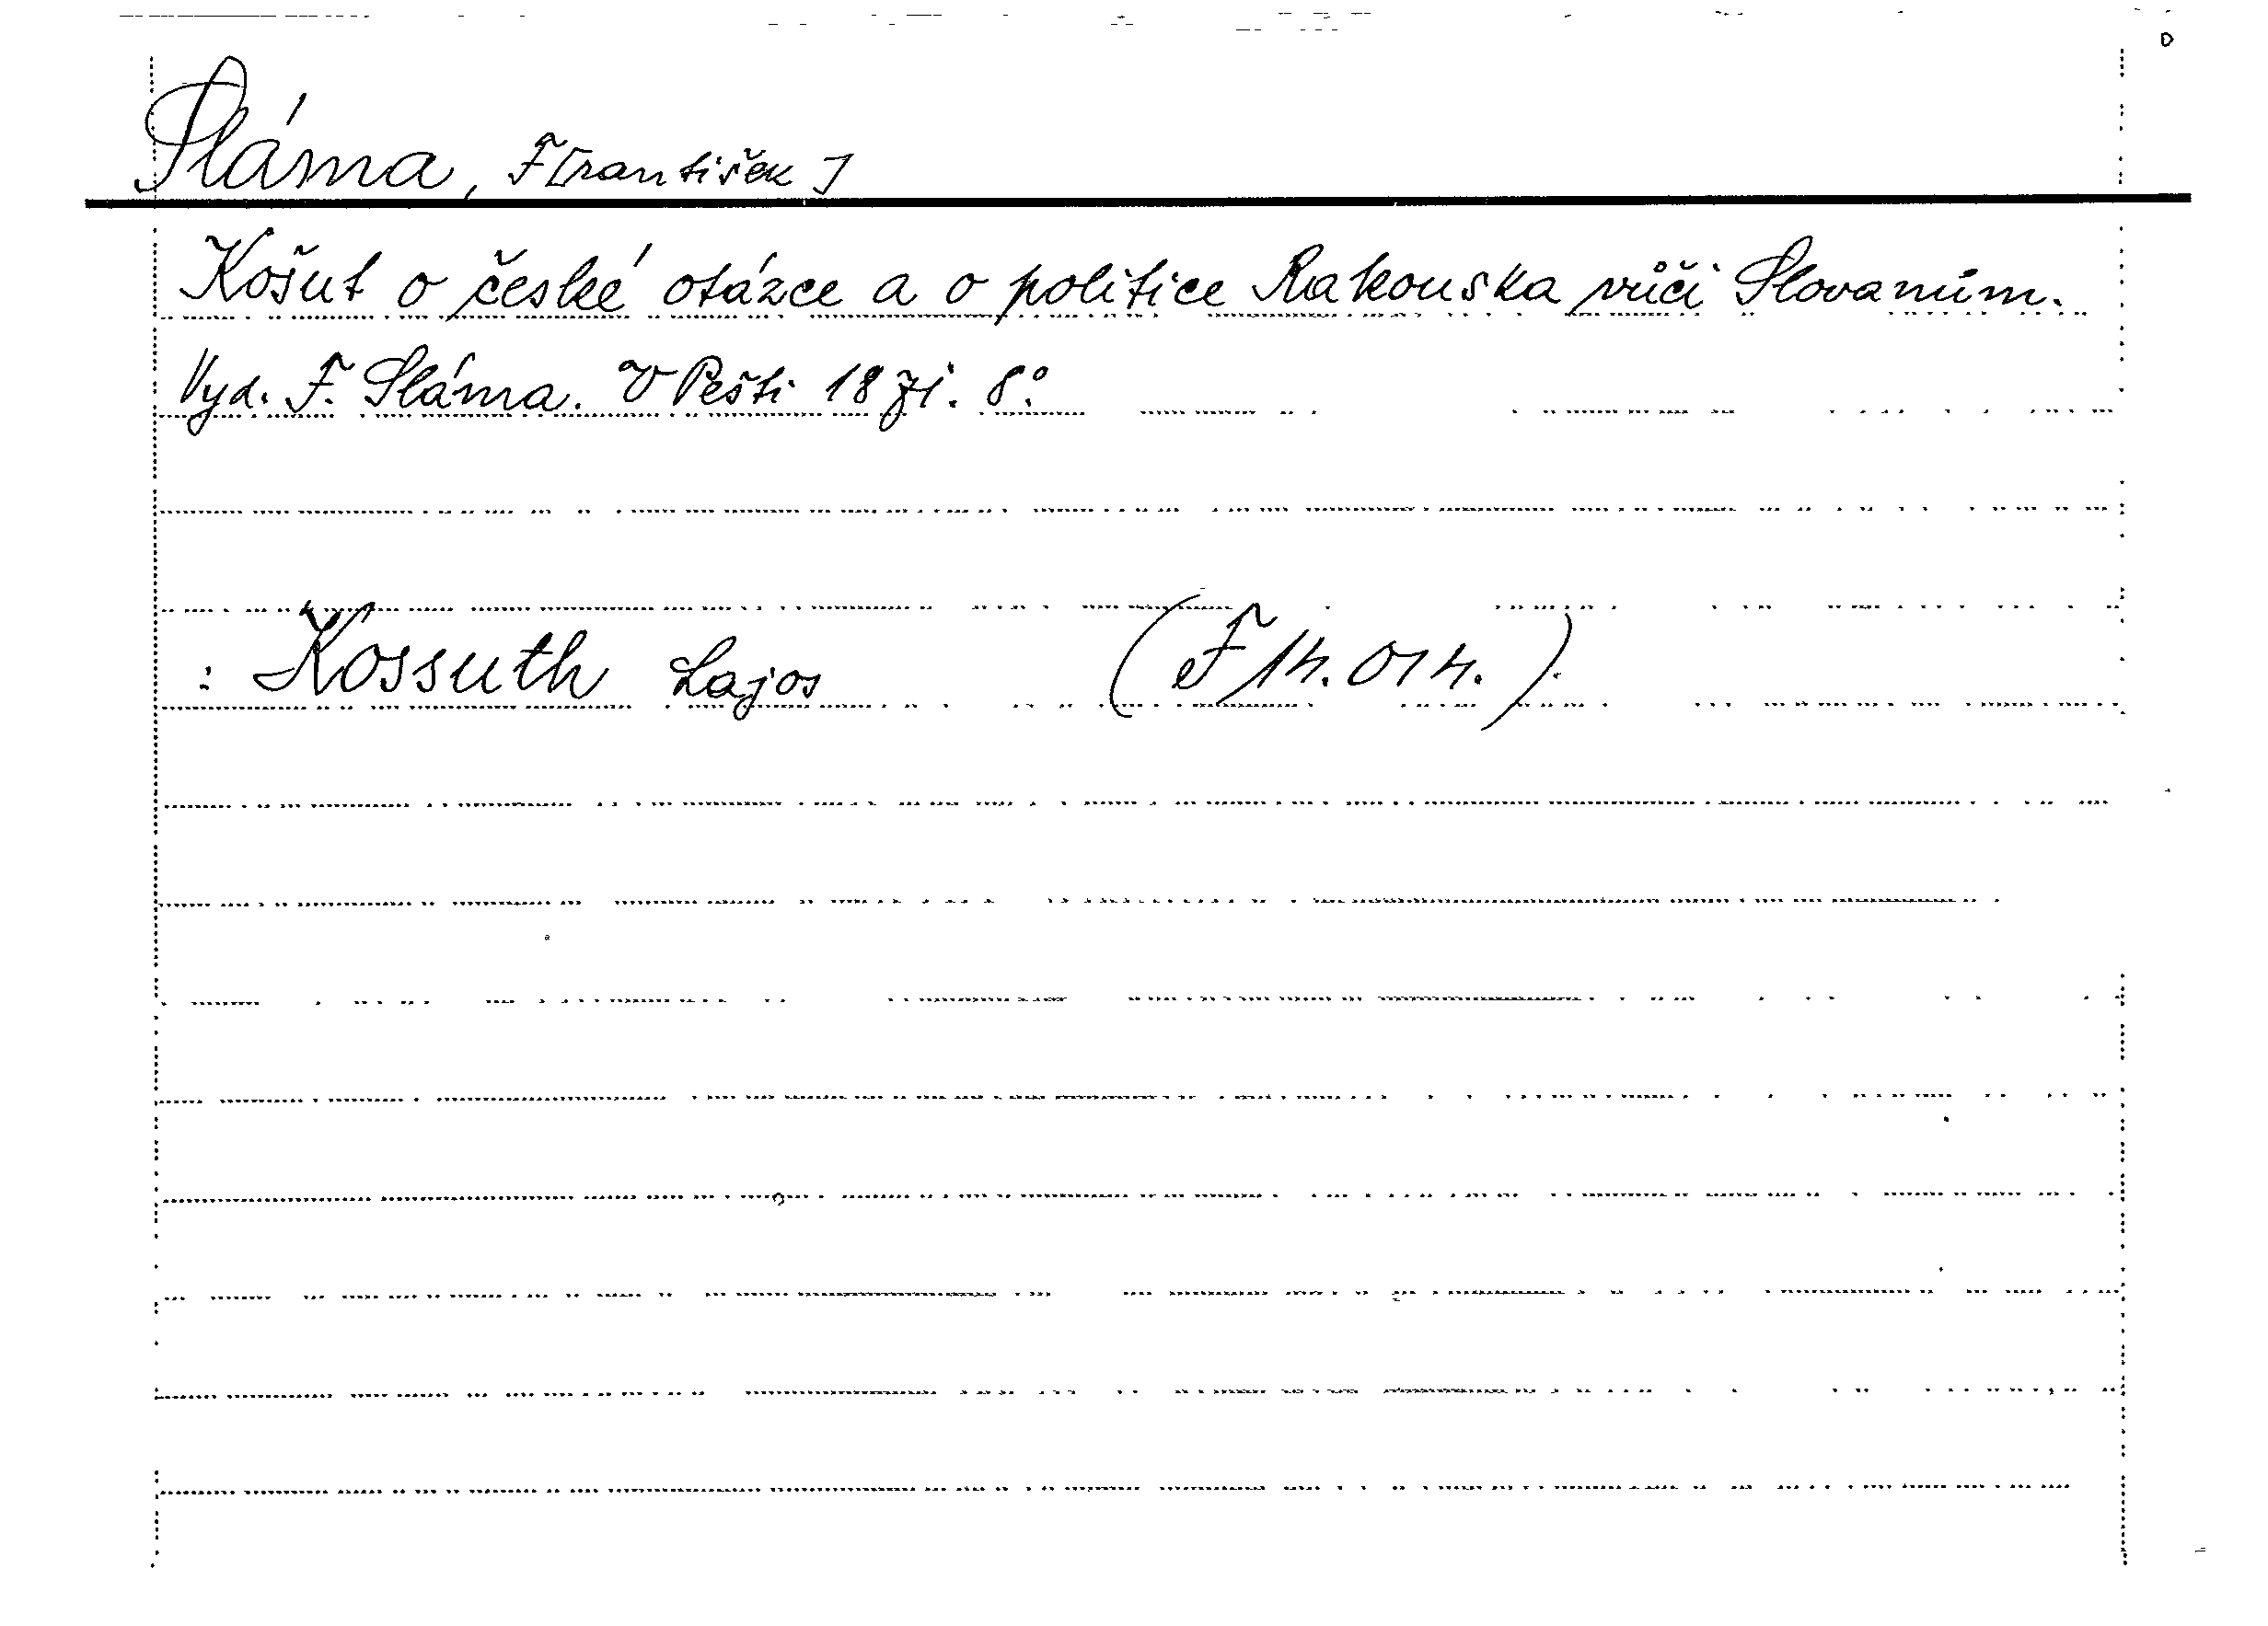 Sláma, F[rantišek]
Košut o české otázce a o politice Rakouska vůči Slovanům.
Vyd. F. Sláma. V Pešti 1871. 8°.
: Kossuth Lajos (F 14.014.)